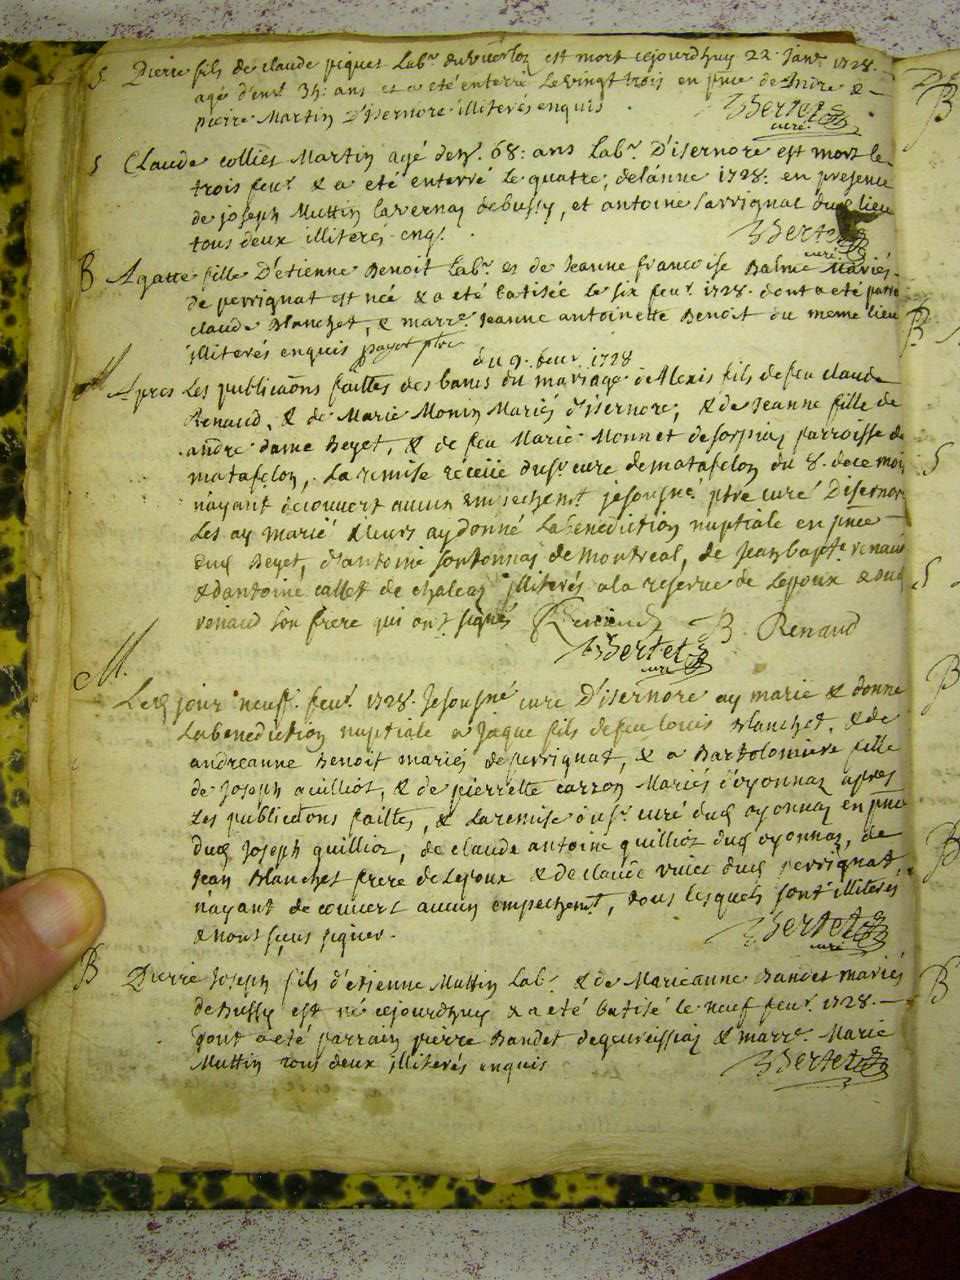 S Pierre fils de claude piquet Labr. est mort cejourdhuy 22 Janr. 1728.
agé d'envr. 34: ans et a été enterré Levingt trois en pnce de Andre &
pierre Martin D'isernore illiterés enquis
Bertet
curé
S Claude colliet Martin agé denr. 68: ans Labr. D'isernore est mort le
trois feur. & a eté enterré le quatre, delánne 1728. en presence
de joseph Muttin Lavernay debussy, et antoine Savrignat dud. lieu
tous deux illiterés enqs.
Bertet
curé
B Agatte fille D'etienne Benoit Labr. et de Jeanne francoise Balme Mariés
de perrignat est née & a eté batisée le six feur. 1728. dont a eté parr.
claude Blanchet, & marre. Jeanne antoinette Benoit du meme lieu
illiterés enquis payot ptre
du 9. feur. 1728
M
Apres Les publicaôns faittes des bancs du mariage d'Alexis fils de feu claude
Renaud, & de Marie Monin Mariés d'isernore, & de Jeanne fille de
andre dame Beyet, & de feu Marie Monnet de sorpiaz parroisse de
matafelon, La remise receüe dusr cure de matafelon du 8. de ce mois
n'ayant decouvert aucun empechemt. jesousne. ptre curé Disernore
Les ay marié & leurs ay donné La benediction nuptiale en pnce
dud. Beyet, d'antoine de Montreal, de Jean bapte. renaud
& d'antoine callet de chaleaz illiterés a la reserve de Lepoux & dud.
renaud son frere qui ont signés Renaud B. Renaud
Bertet
curé
M.
Led. jour neuf. feur. 1728. Jesousné cure D'isernore ay marie & donne
La benediction nuptiale a Jaque fils de feu Louis Blanchet, & de
andreanne Benoit mariés de perrignat, & a Bartolomiere fille
de Joseph guilliot, & de pierrette carron Mariés d'oyonnaz apres
Les publications faittes, & La remise du sr. curé dud. oyonnaz en pnce
dud. Joseph guilliot, de claude antoine guilliot dud. oyonnaz, de
Jean Blanchet frere de Lepoux & de claude vuiet dud. perrignat,
nayant decouvert aucun empechemt., tous lesquels sont illiterés
& nont sçeus signer.
Bertet
curé
B Pierre Joseph fils d'etienne Muttin Lab. & de Marieanne Bandet mariés
de Bussy est né cejourdhuy & a eté batisé le neuf feur. 1728.
dont a eté parrain pierre Bandet de & marre. Marie
Muttin tous deux illiterés enquis
Bertet